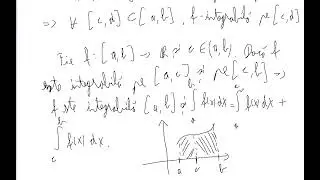 => ∀ [c,d] ⊂ [a,b], f-integrabilă pe [c,d]
Fie f: [a,b] → ℝ și c ∈ (a,b). Dacă f
este integrabilă pe [a,c] și pe [c,b] →
f este integrabilă [a,b] și ∫ₐᵇ f(x) dx = ∫ₐᶜ f(x) dx +
∫꜀ᵇ f(x) dx.
a c b